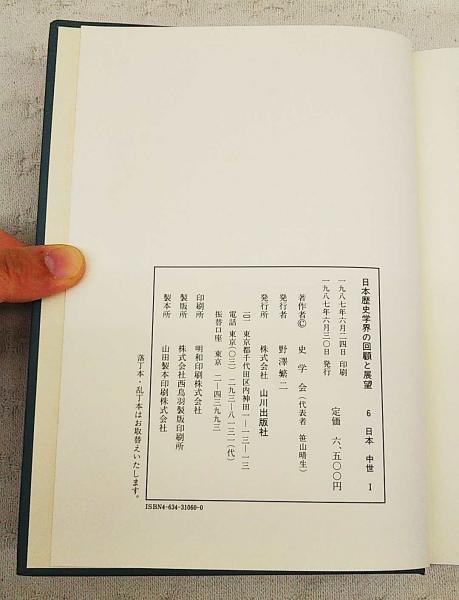 日本歴史学界の回顧と展望 6 日本 中世 I
一九八七年六月二四日 印刷
一九八七年六月三〇日 発行
定価 六、五〇〇円
著作者© 史学会(代表者 笹山晴生)
発行者 野澤繁二
発行所 株式会社 山川出版社
一〇一 東京都千代田区内神田一―一三―一三
電話 東京(〇三) 二九三―八一三一(代)
振替口座 東京 二―四三九九三
印刷所 明和印刷株式会社
製版所 株式会社西鳥羽製版印刷所
製本所 山田製本印刷株式会社
落丁本・乱丁本はお取替えいたします。
ISBN4-634-31060-0